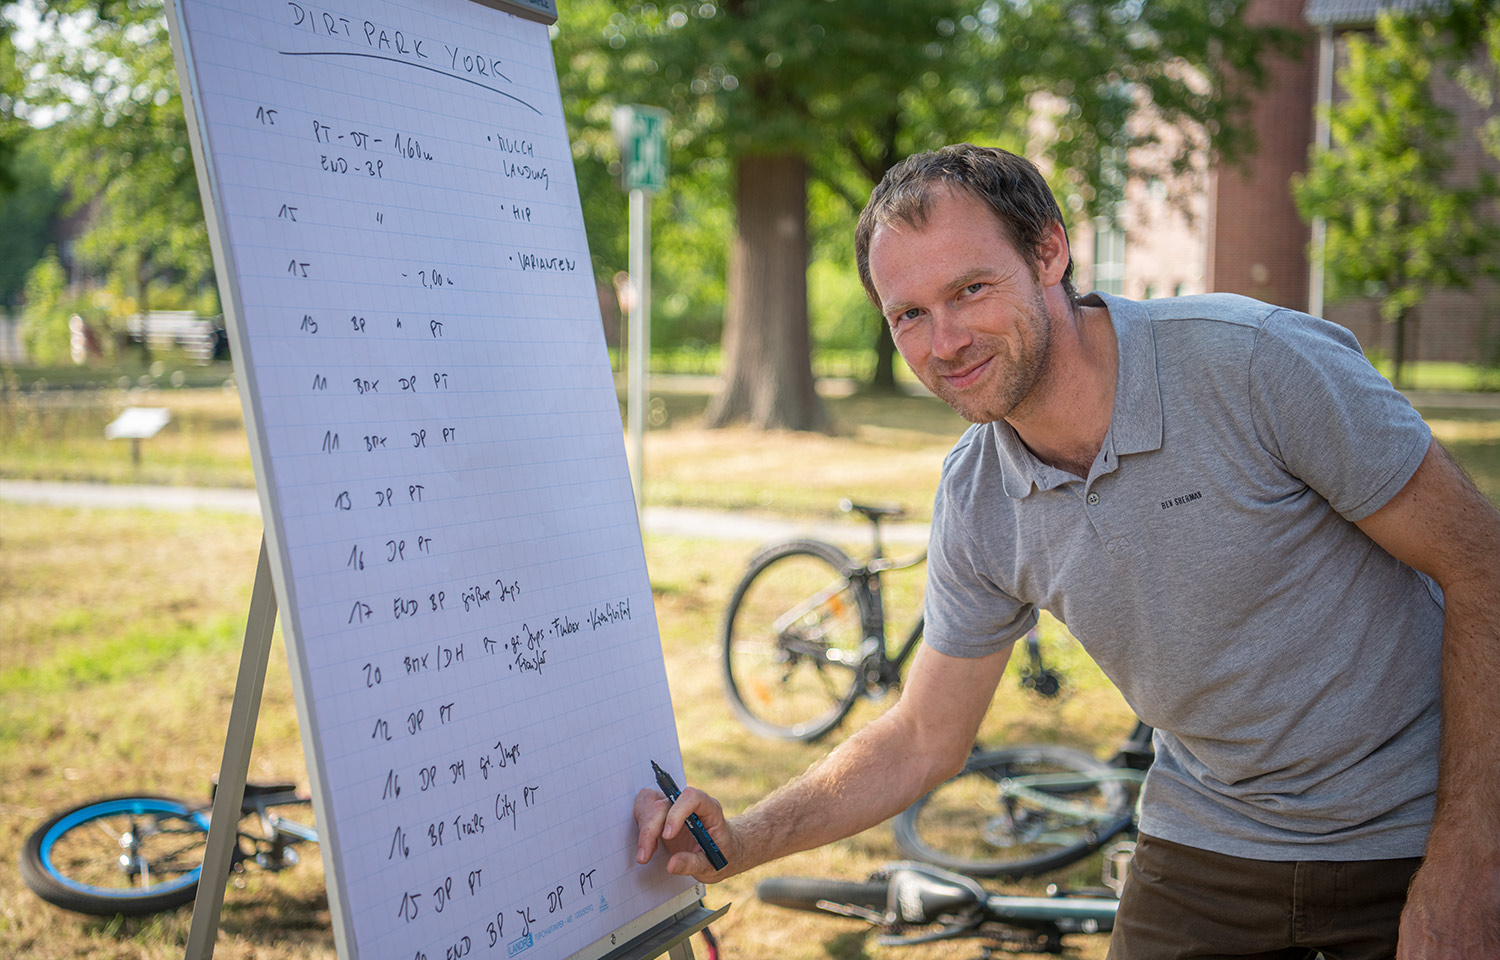 DIRTPARK YORK
15 PT - DT - 1,60m • MULCH
END - BP LANDUNG
15 " • HIP
15 - 2,00m • VARIANTEN
19 BP " PT
11 BMX DP PT
11 BMX DP PT
13 DP PT
16 DP PT
17 END BP größere Jumps
20 BMX/DH PT • gr. Jumps • Funbox • Kreativität
• Transfer
12 DP PT
16 DP DH gr. Jumps
16 BP Trails City PT
15 DP PT
END BP JL DP PT
LANDRÉ
BEN SHERMAN